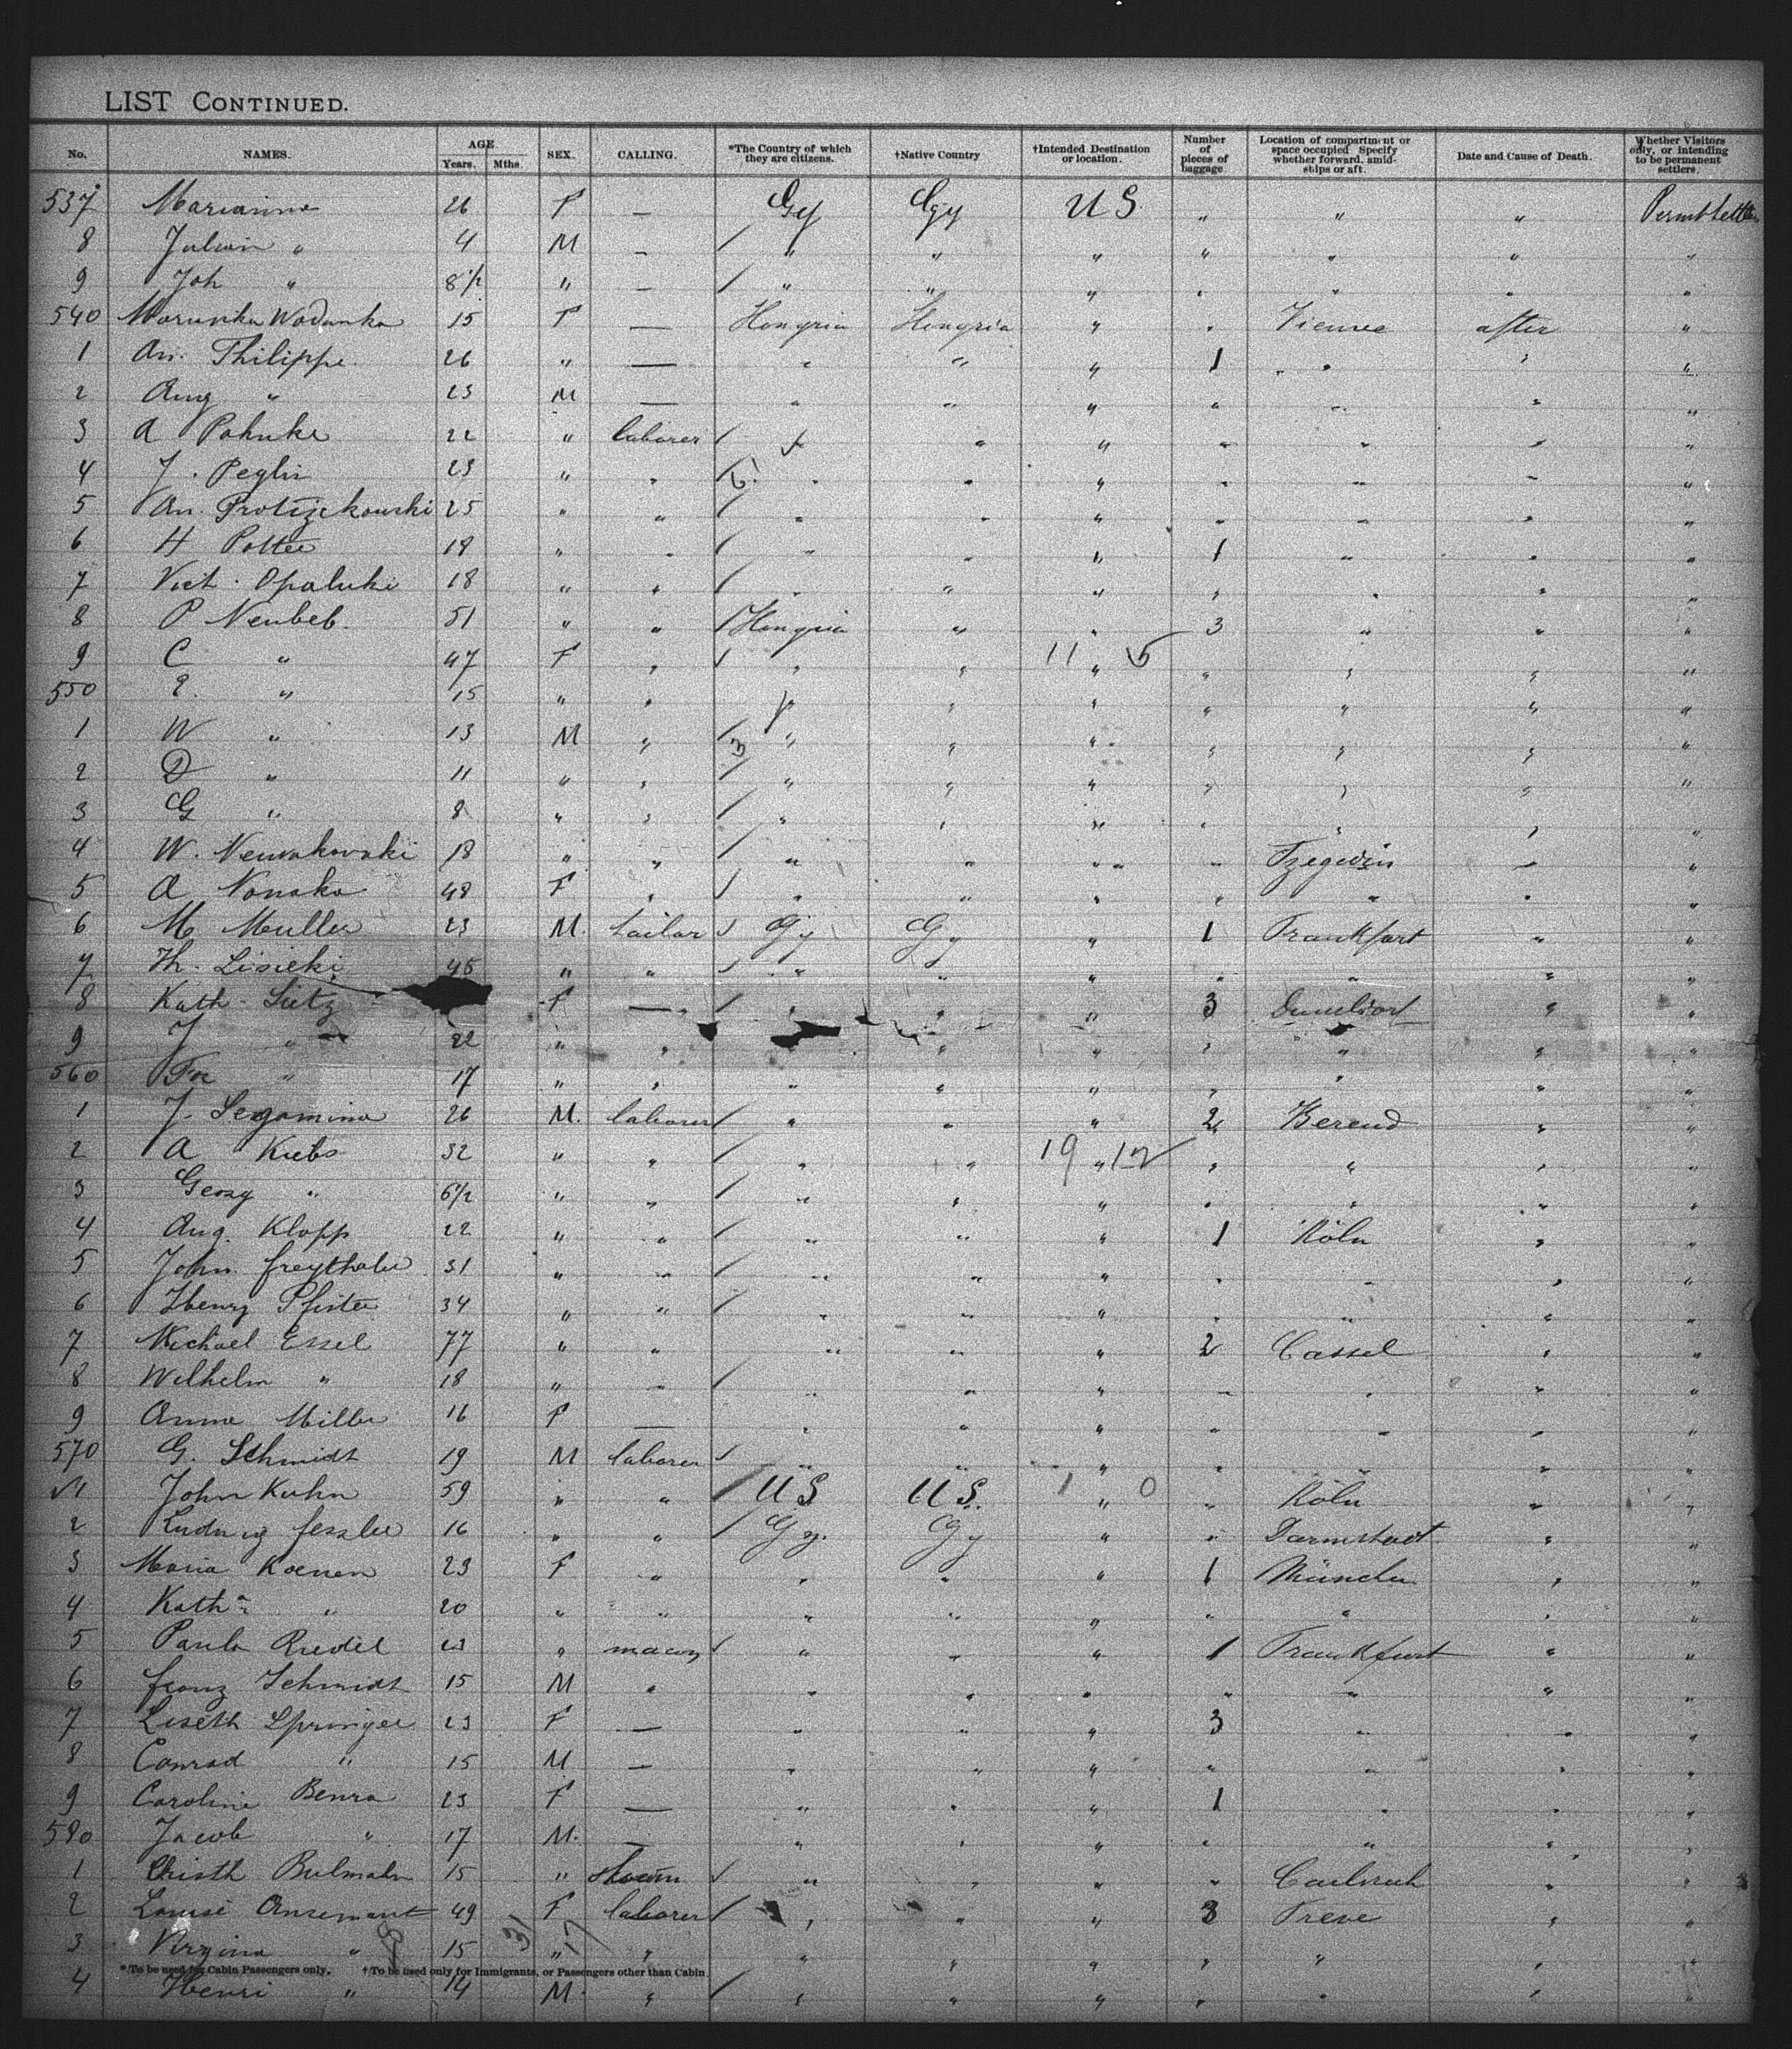 LIST CONTINUED.
No. NAMES. AGE Years. Mths. SEX. CALLING. *The Country of which they are citizens. †Native Country †Intended Destination or location. Number of pieces of baggage Location of compartment or space occupied Specify whether forward, amid-ships or aft. Date and Cause of Death. Whether Visitors only, or intending to be permanent settlers.
537 Marianna 26 F — Gy Gy U S. " " "
8 Julian " 4 M — " " " " " " "
9 Joh " 8 1/2 " — " " " " " " "
540 Wodanka 15 F — Hongria Hongria " " Vienne after "
1 An. Philippe. 26 " — " " " 1 " " "
2 Aug " 23 M — " " " " " " "
3 A Pohnke 22 " laborer " " " " " "
4 J. Peglin 23 " " " " " " " " "
5 An. 25 " " " " " " " " "
6 H Potter 18 " " " " " 1 " " "
7 Vict. Opaluki 18 " " " " " " " " "
8 P Neubeb. 51 " " Hongria " " 3 " " "
9 C " 47 F " " " 11 " 5 " " " "
550 E. " 15 " " " " " " " "
1 W " 13 M " 3 " " " " " " "
2 D " 11 " " " " " " " " "
3 G " 8 " " " " " " " " "
4 W. 18 " " " " " " " "
5 A Nonaka 48 F " " " " " " " "
6 M Muller 23 M. tailor Gy Gy " 1 Frankfurt " "
7 Th. Lisieki 45 " " " " " " " " "
8 Kath. Sietz F — " " " 3 " "
9 J " 22 " " " " " " " "
560 Fr " 17 " " " " " " " " "
1 J. Segamina 26 M. laborer " " " 2 Berend " "
2 A Kiebs 32 " " " " 19 " 12 " " " "
3 Georg " 6 1/2 " " " " " " " " "
4 Aug. Klopp 22 " " " " " 1 Köln " "
5 John freythaler 31 " " " " " " " " "
6 Henry Pfister 34 " " " " " " " " "
7 Michael Essel 77 " " " " " 2 Cassel " "
8 Wilhelm " 18 " " " " " " " " "
9 Anna Miller 16 F — " " " " " " "
570 G. Schmidt 19 M laborer " " " " " " "
1 John Kuhn 59 " " U S U S. 1 " 0 " Köln " "
2 Ludwig fessler 16 " " Gy. Gy " " Darmstadt " "
3 Maria Koenen 23 F " " " " 1 München " "
4 Kath " 20 " " " " " " " " "
5 Paula Riedel 23 " " " " 1 Frankfurt " "
6 franz Schmidt 15 M " " " " " " " "
7 Liseth Springer 23 F — " " " 3 " " "
8 Conrad " 15 M — " " " " " " "
9 Caroline Benra 23 F — " " " 1 " " "
580 Jacob " 17 M. — " " " " " " "
1 Christh Bulmahn 15 " " " " " " "
2 Louise Ansemant 49 F laborer " " " 3 Treve " "
3 Virgina " 15 " " " " " " " " "
*To be used for Cabin Passengers only. †To be used only for Immigrants, or Passengers other than Cabin
4 Henri " 14 M. " " " " " " " "